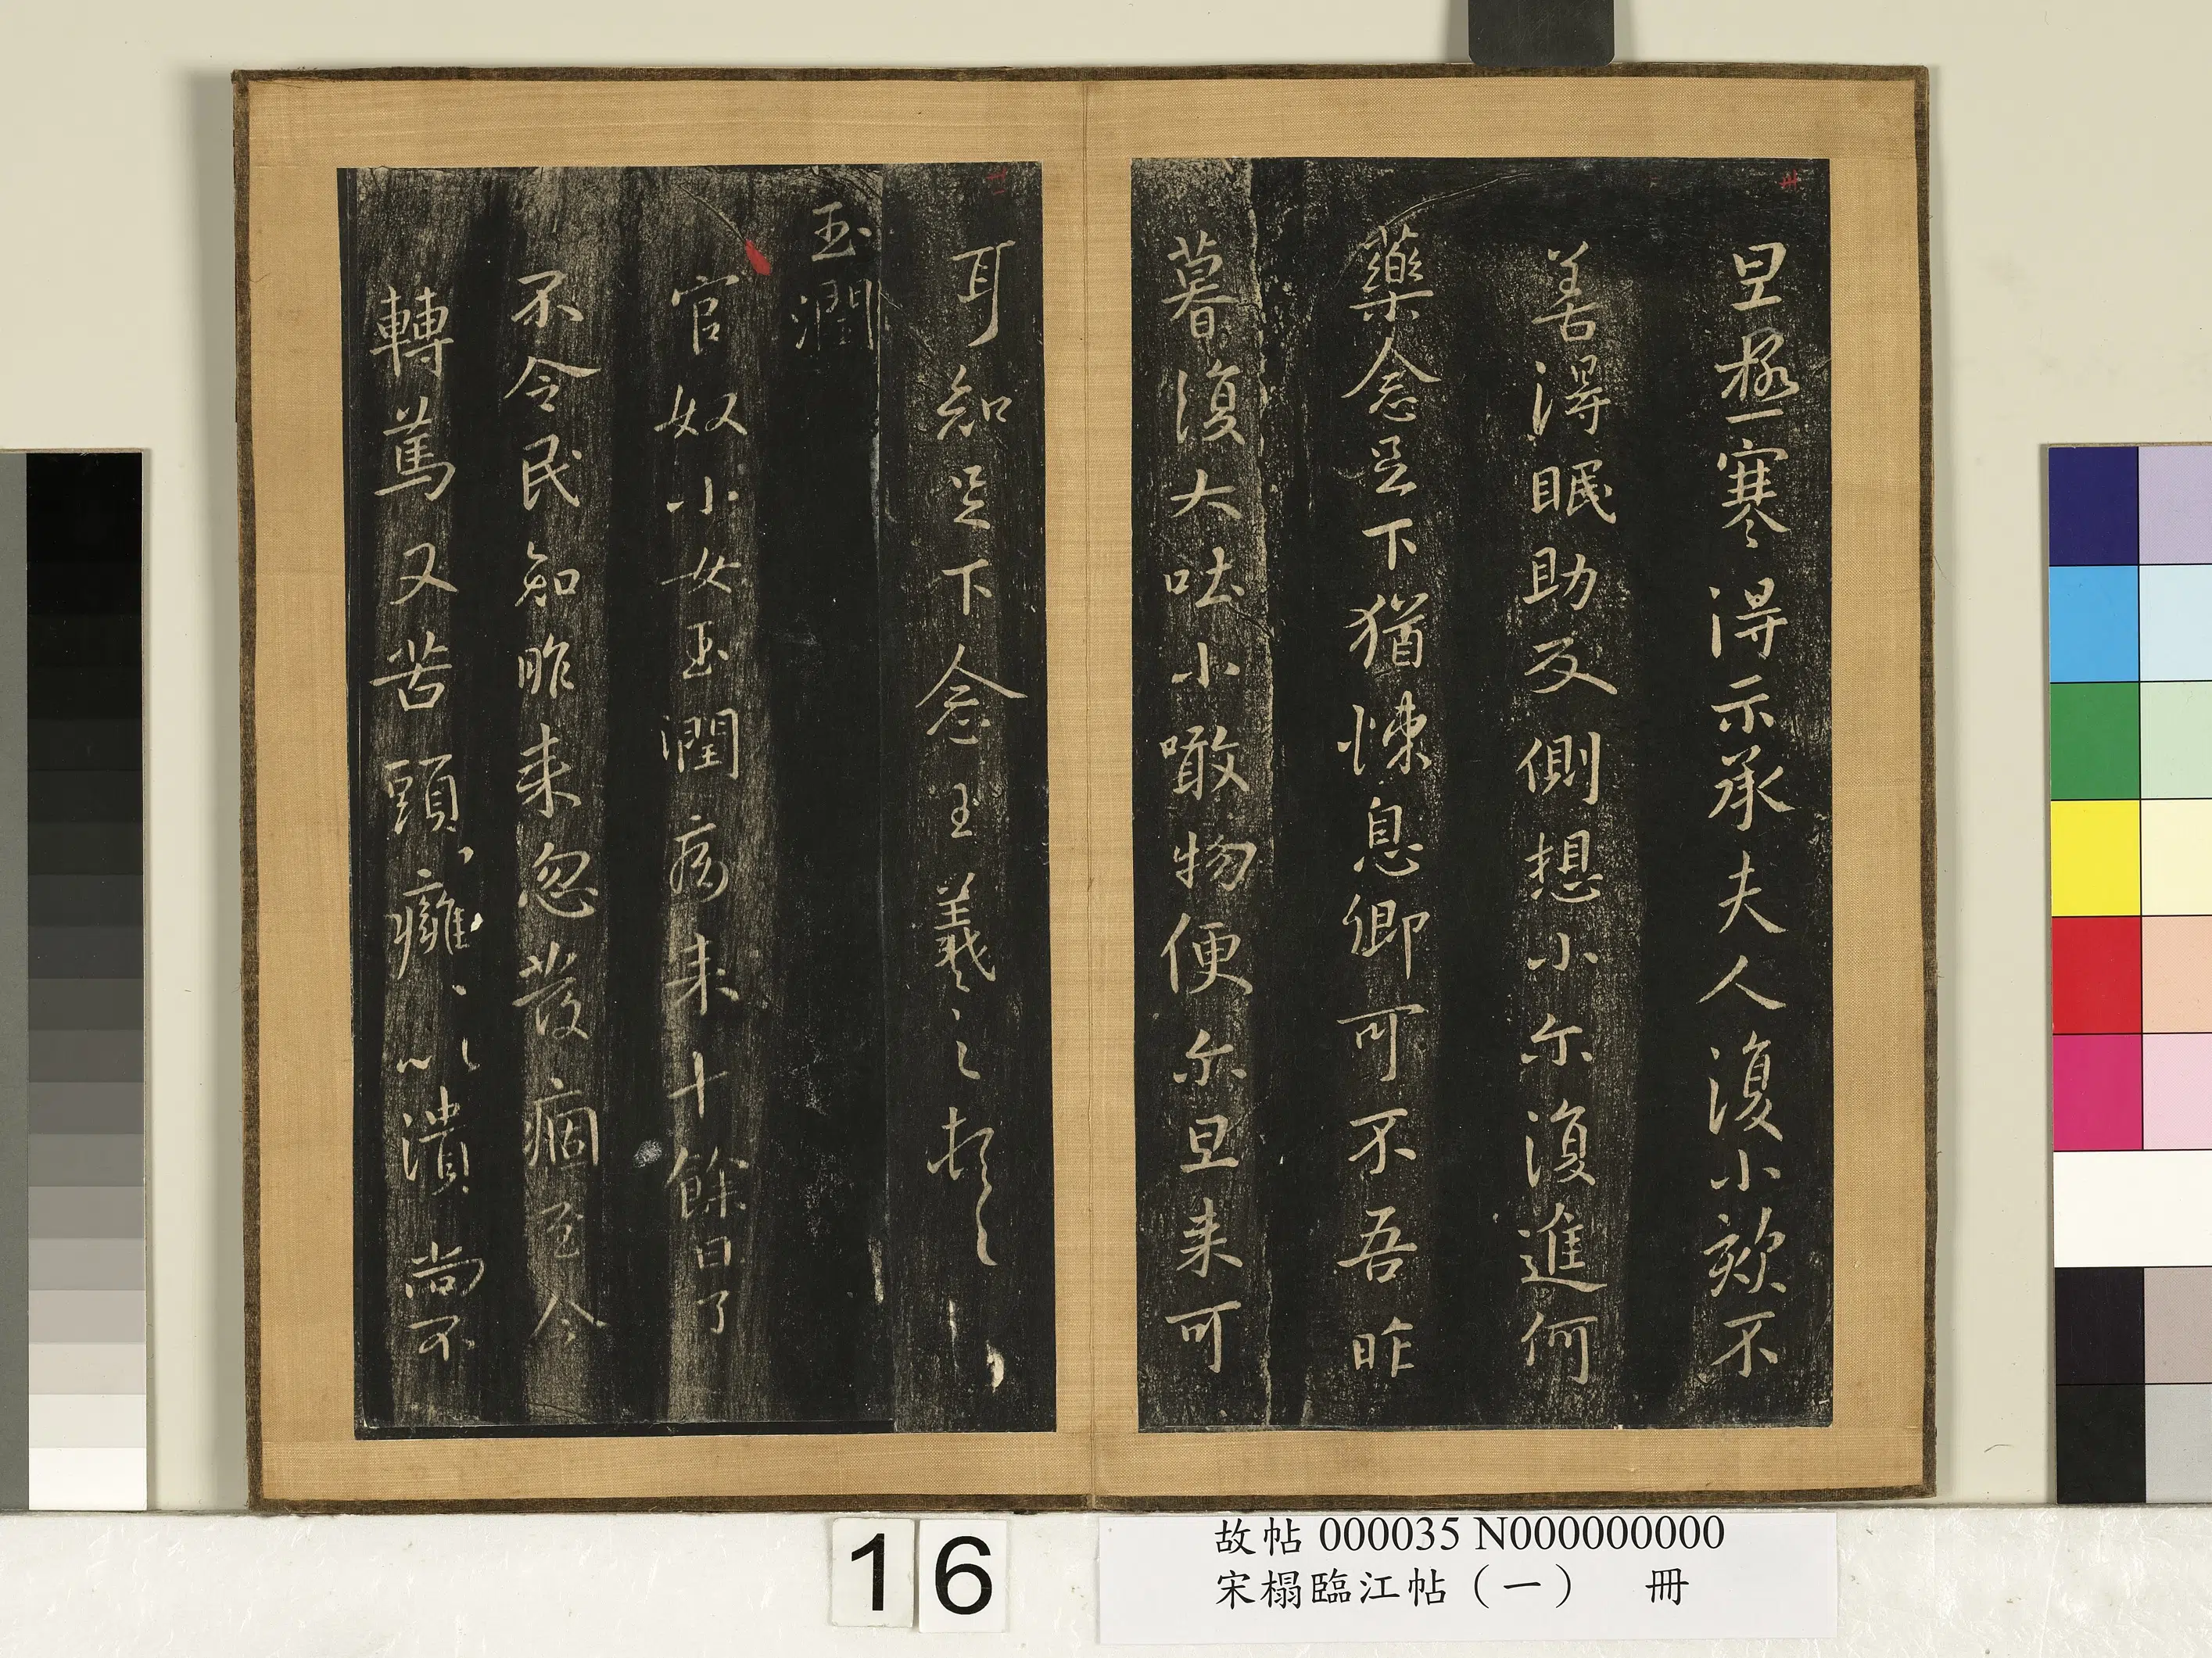 旦極寒得示承夫人復小欬不
善得眠助反側想小尒復進何
藥念足下猶悚息卿可不吾昨
暮復大吐小噉物便尒旦来可
耳知足下念王羲之頓首
玉潤
官奴小女玉潤病来十餘日了
不令民知昨来忽發痼至今
轉篤又苦頭癰癰以潰尚不
16
故帖 000035 N000000000
宋榻臨江帖（一） 冊